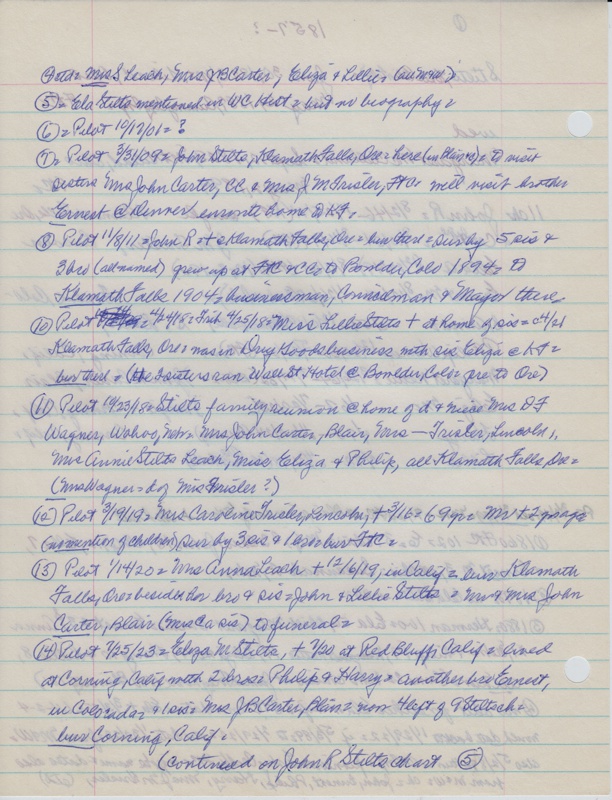 Mrs S Leach, Mrs J B Carter, Eliza & Lillie
(5) = Ela Stilts mentioned in WC Hist = but no biography =
(6) = Pilot 10/17/01 = ?
Pilot 3/31/09 = John Stilts, Klamath Falls, Ore = here (in Blair) = to visit
sisters Mrs John Carter, CC & Mrs J M Frisler, FtC = will visit brother
Ernest @ Denver enroute home to KF =
(8) Pilot 11/8/11 = John R Klamath Falls, Ore = bur there = sur by 5 sis &
3 bro (all named) grew up at FtC & CC to Boulder, Colo 1894 = to
Klamath Falls 1904 = businessman, Councilman & Mayor there
(10) Pilot 4/25/18 = Miss Lillie Stilts + at home of sis =
Klamath Falls, Ore = was in Dry Goods business with sis Eliza @ KF =
bur there = (the 2 sisters ran Wall St Hotel @ Boulder, Colo = pre to Ore)
(11) Pilot 10/23/18 = Stilts family reunion @ home of & Mrs D F
Wagner, Wahoo, Mrs John Carter, Blair, Mrs — Frisler, Lincoln,
Mrs Annie Stilts Leach, Miss Eliza & Philip, all Klamath Falls, Ore =
(Mrs Wagner = d of Mrs Frisler?)
Pilot 3/19/19 = Mrs Caroline Frisler, Lincoln, + 3/16 = 69 yr =
(no mention of children), sur by 3 sis & bur FtC =
(13) Pilot 1/14/20 = Mrs Anna Leach + 12/6/19, in Calif = bur Klamath
Falls, Ore = beside her bro & sis = John & Lillie Stilts = Mr & Mrs John
Carter, Blair (Mrs C a sis) to funeral =
(14) Pilot 7/25/23 = Eliza M Stilts, + 7/20 at Red Bluff, Calif = lived
at Corning, Calif with 2 bros = Philip & Harry = another bro Ernest,
in Colorado & 1 sis = Mrs J B Carter, Blair = now 4 left of 9 Stilts ch =
bur Corning, Calif =
(continued on John R Stilts chart (5)